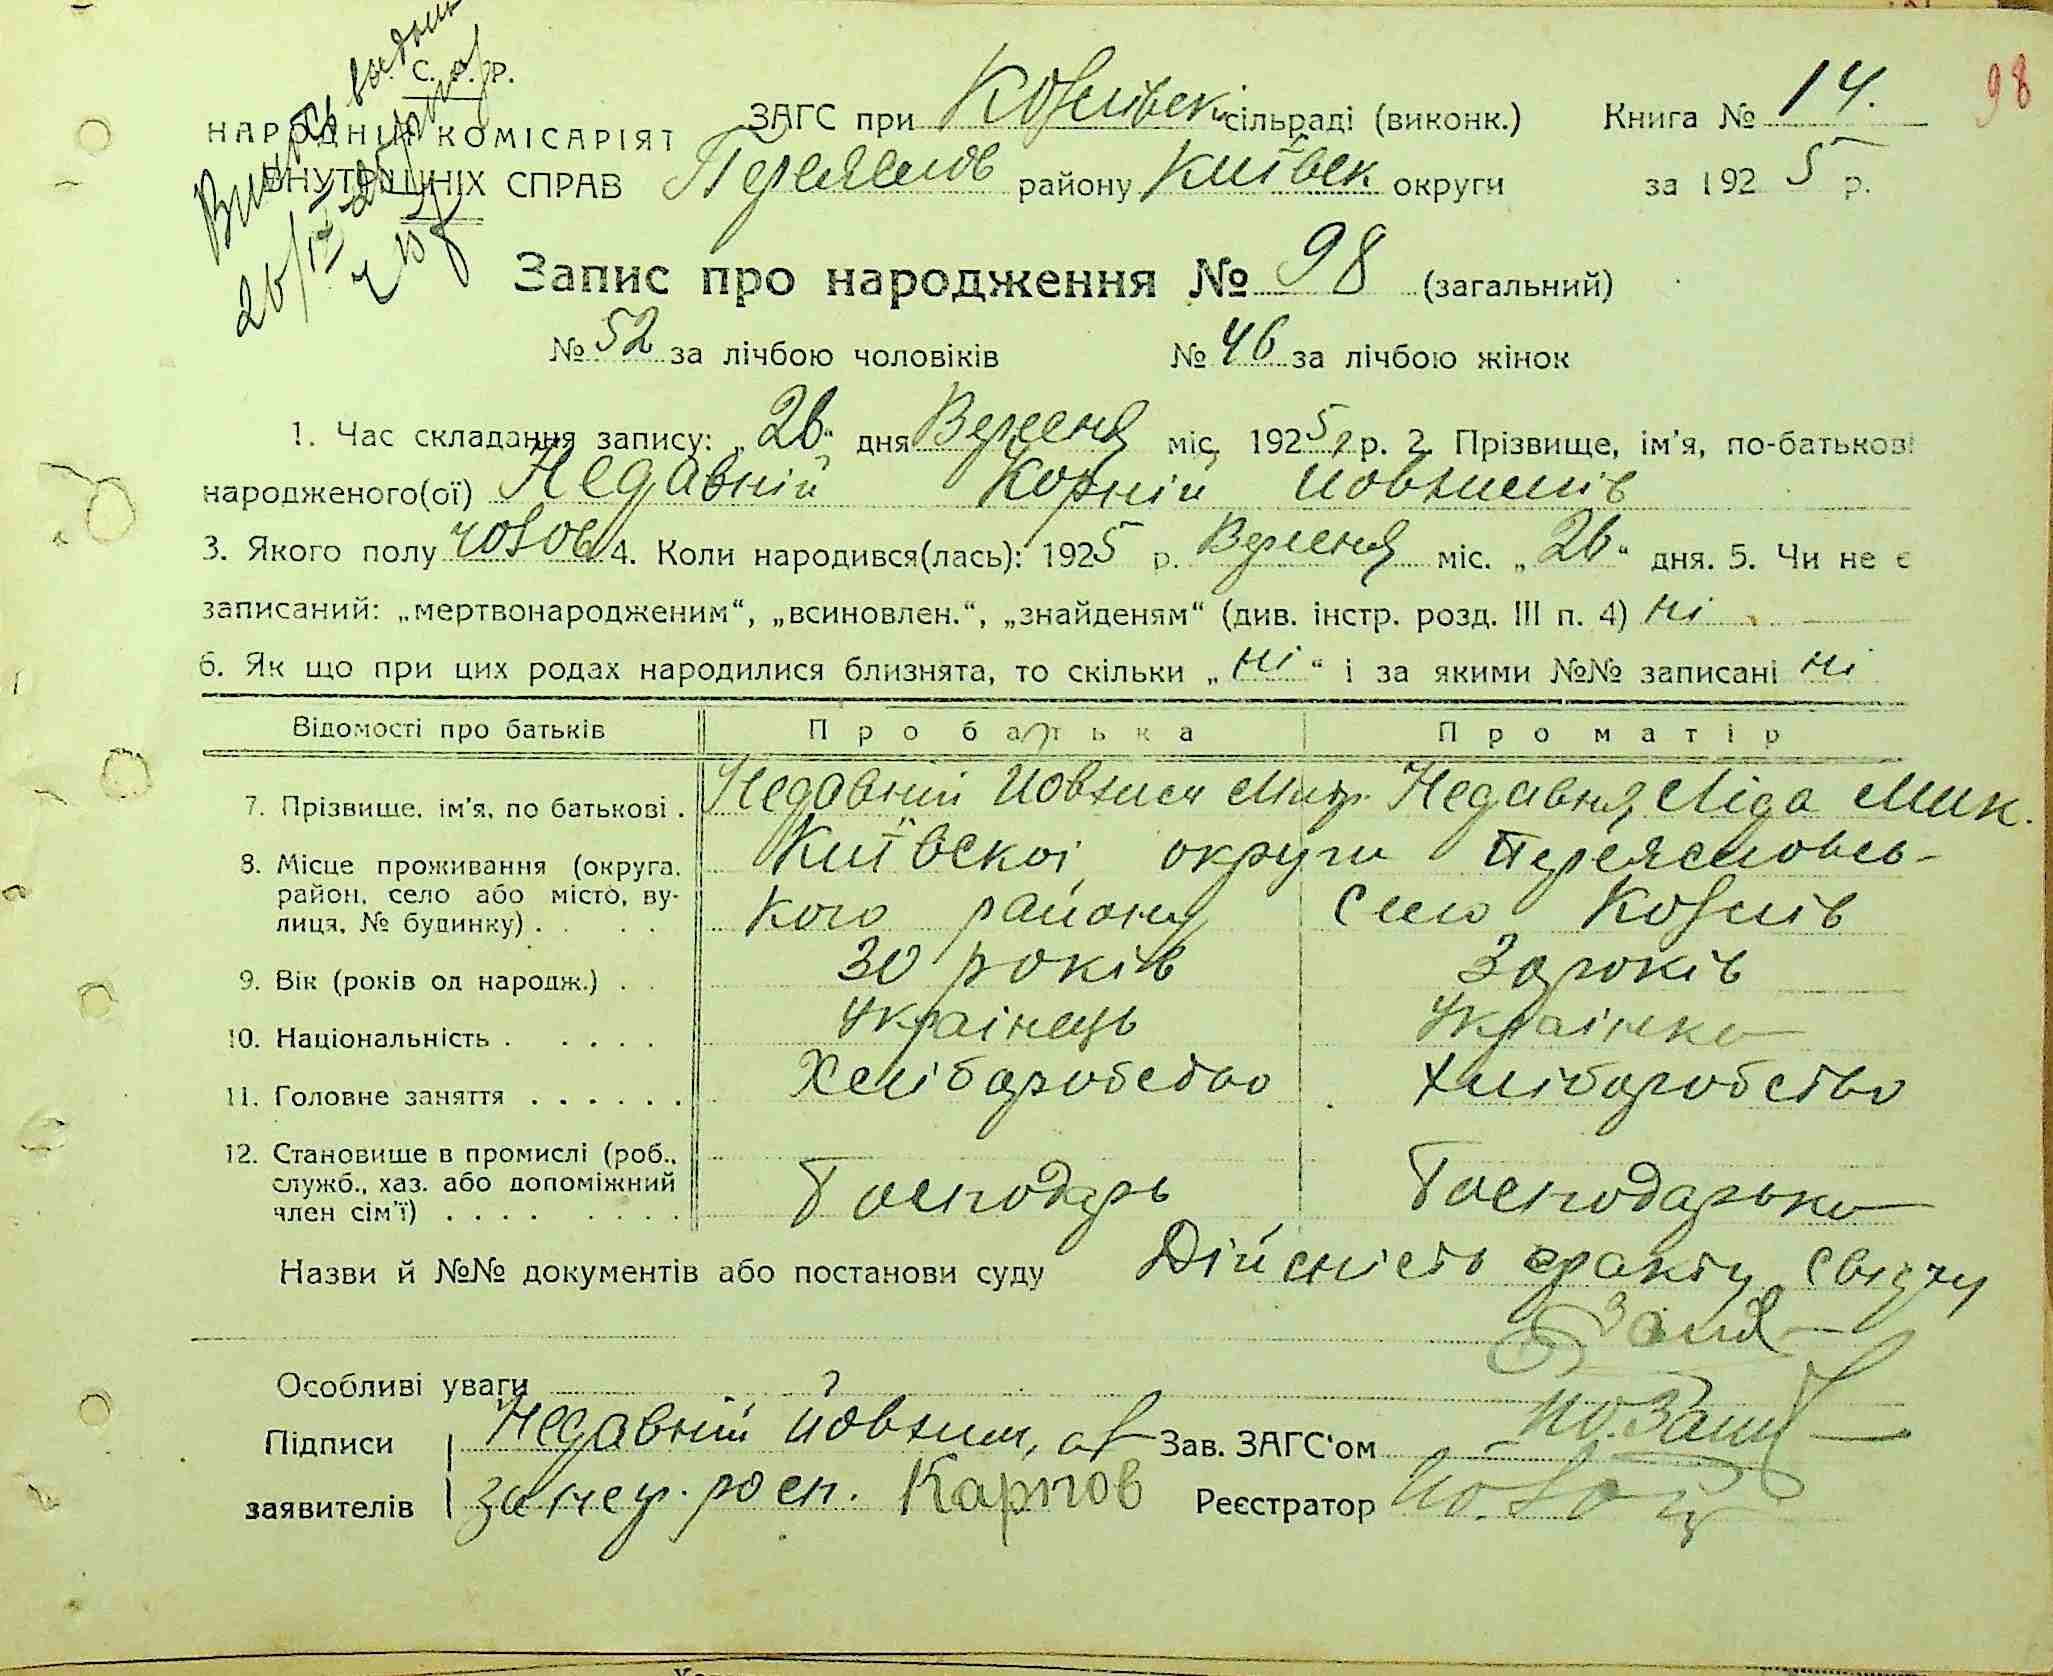 98
С. Р. Р.
НАРОДНІЙ КОМІСАРІЯТ
ВНУТРІШНІХ СПРАВ
ЗАГС при Козлівск. сільраді (виконк.) Книга № 14.
Переяслов району Київск округи за 1925 р.
Запис про народження № 98 (загальний)
№ 52 за лічбою чоловіків № 46 за лічбою жінок
1. Час складання запису: „26“ дня Вересня міс. 1925 р. 2. Прізвище, ім'я, по-батькові
народженого(ої) Недавній Корній Йовхимів
3. Якого полу чолов 4. Коли народився(лась): 1925 р. Вересня міс. „26“ дня. 5. Чи не є
записаний: „мертвонародженим“, „всиновлен.“, „знайденям“ (див. інстр. розд. III п. 4) ні
6. Як що при цих родах народилися близнята, то скільки „ні“ і за якими №№ записані ні
Відомості про батьків Про батька Про матір
7. Прізвище, ім'я, по батькові . Недавній Йовхим Митр. Недавня Ліда Мик.
8. Місце проживання (округа, район, село або місто, вулиця, № будинку) . Київскої округи Переясловсь-
кого району Село Козлів
9. Вік (років од народж.) . . 30 років 30 років
10. Національність . . . . . Українець Українка
11. Головне заняття . . . . . . Хліборобство Хліборобство
12. Становище в промислі (роб.,
служб., хаз. або допоміжний
член сім'ї) . . . . . . . . Господарь Господарька
Назви й №№ документів або постанови суду Дійсність факту свідчу
Особливі уваги
Підписи Недавній Йовхим, а Зав. ЗАГС'ом
заявителів за неп. росп. Карпов Реєстратор